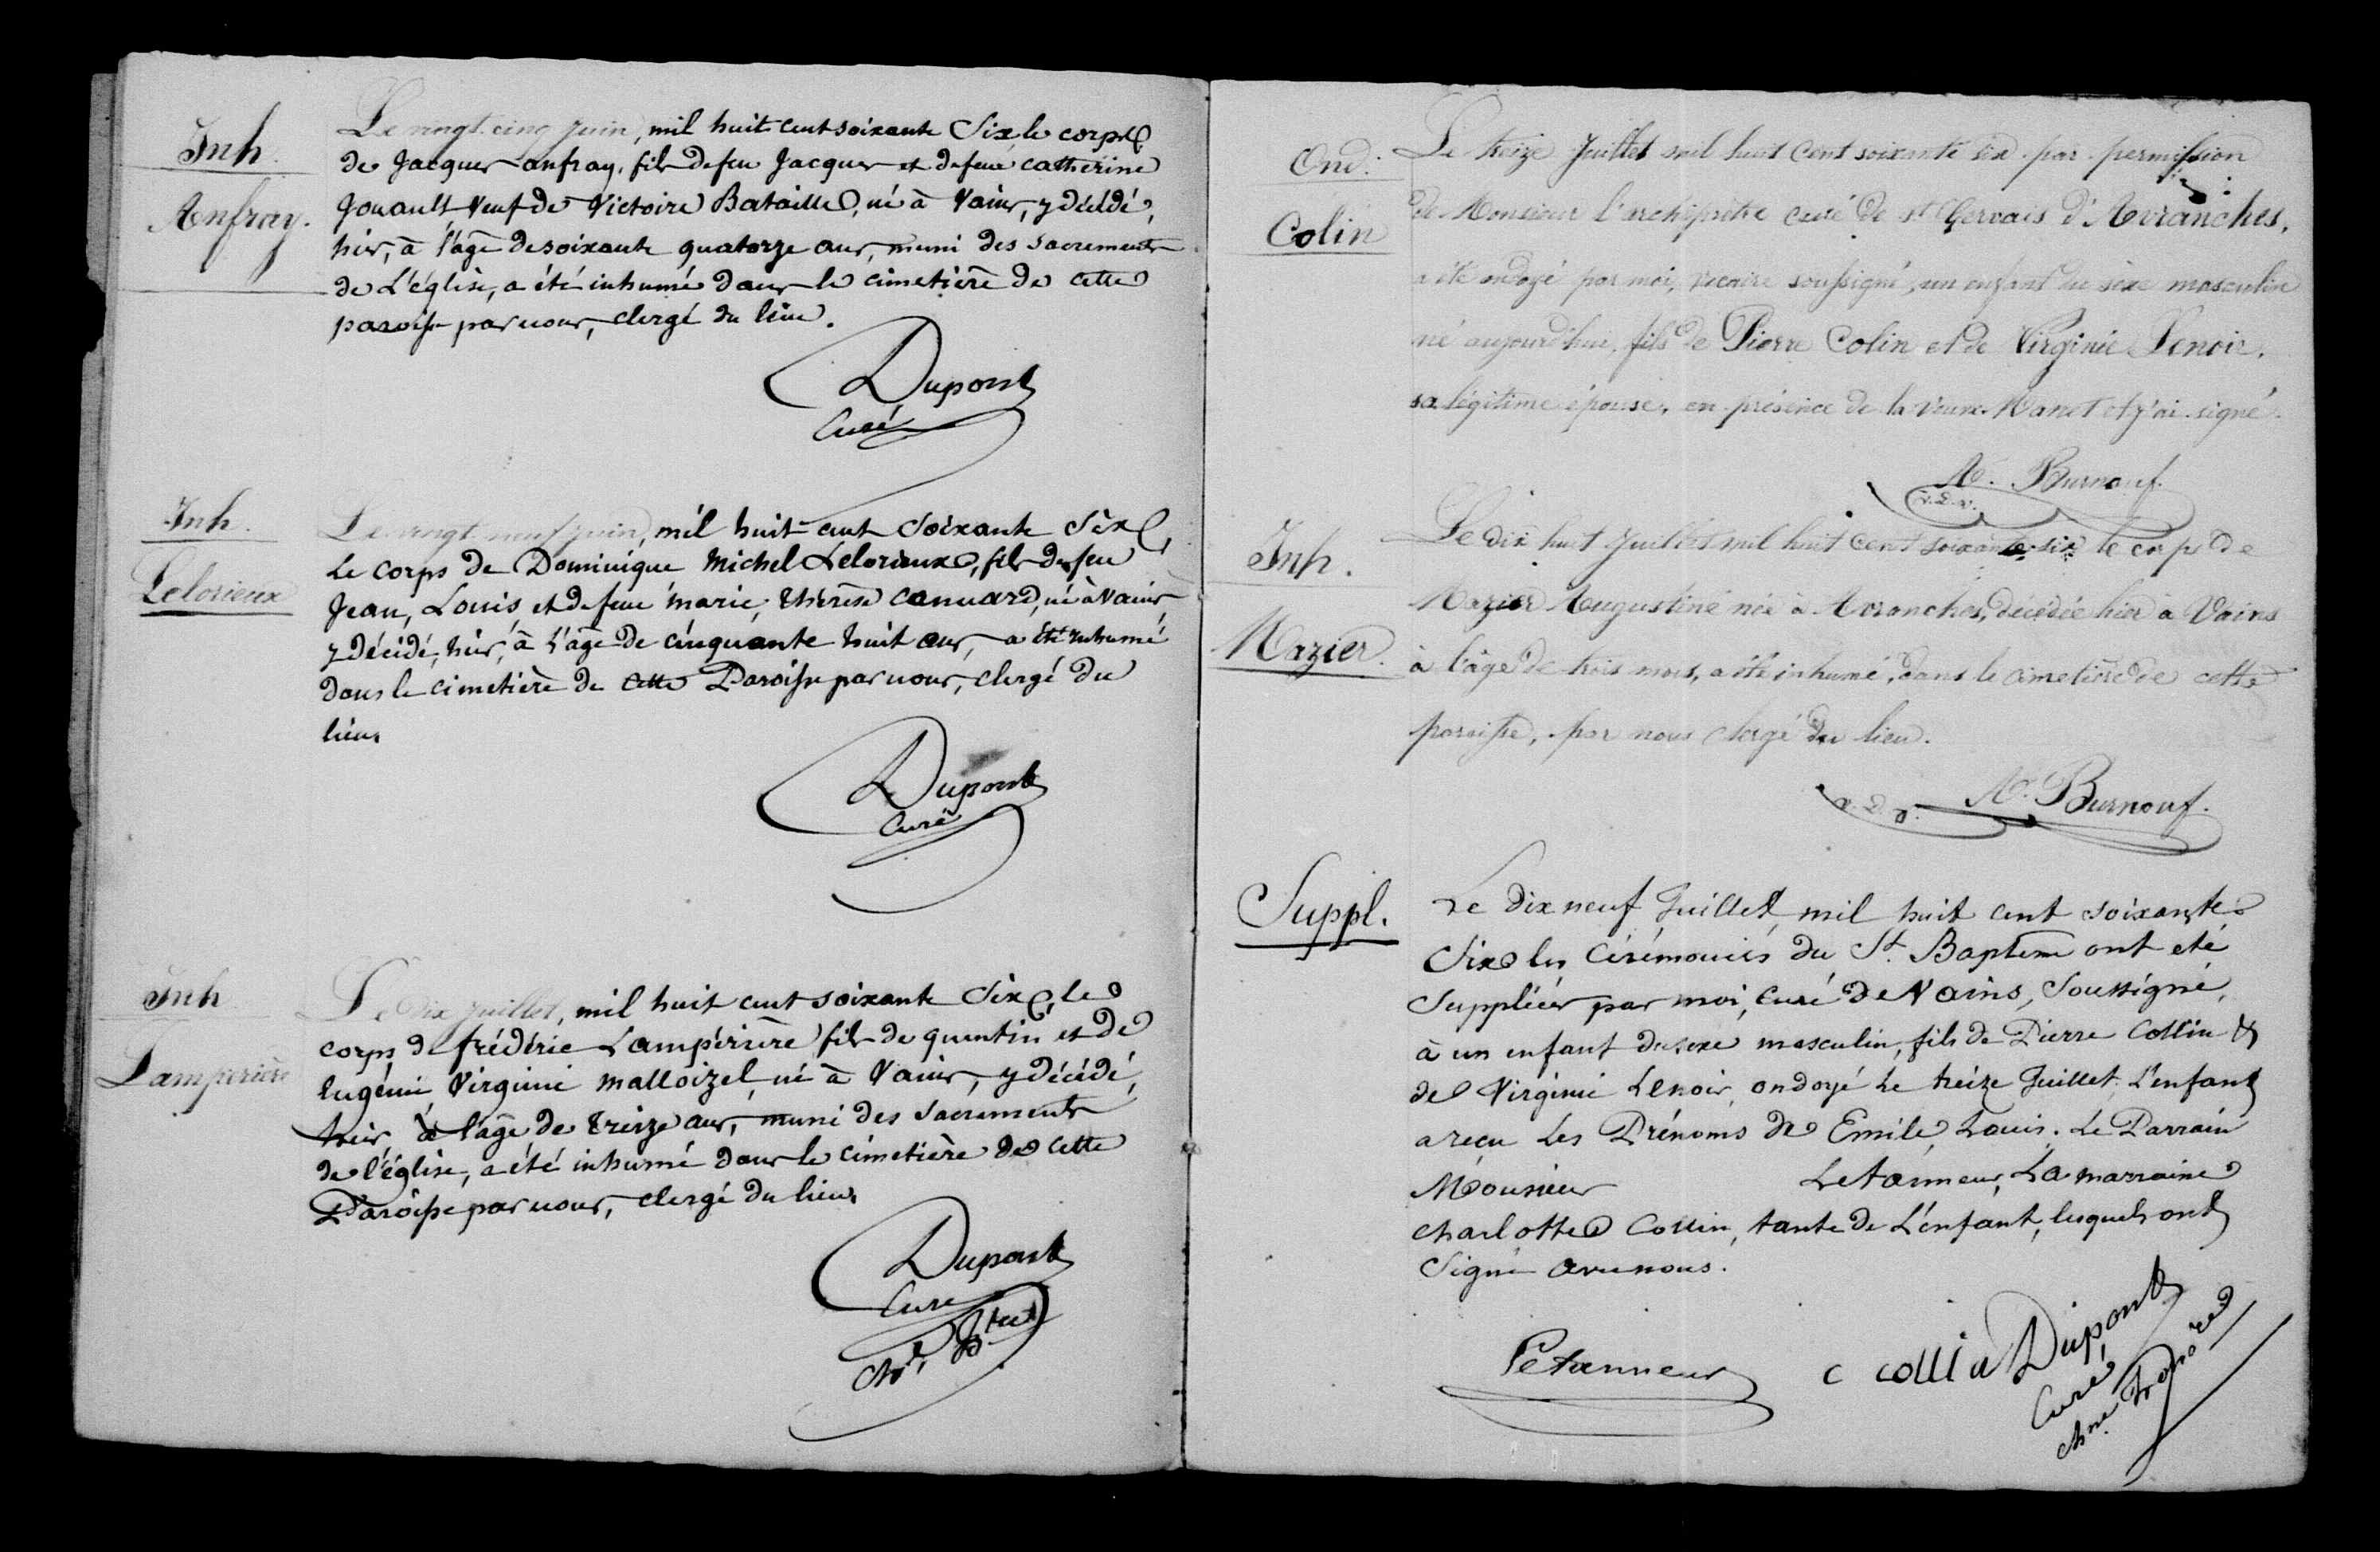 Inh.
Anfray.
Le vingt cinq juin, mil huit cent soixante Six le corps
de Jacques anfray, fils de feu Jacques et de feue catherine
Jouault Veuf de Victoire Bataille, né à Vains, y décédé,
hier, à l'âge de soixante quatorze ans, muni des sacrements
de L'église, a été inhumé dans le cimetière de cette
paroisse par nous, clergé du lieu.
Dupont
Curé
Inh.
Lelorieux
Le vingt neuf juin, mil huit cent Soixante Six,
Le corps de Dominique Michel Lelorieux, fils de feu
Jean, Louis, et de feue marie, thérèse Canuard, né à Vains
y décédé, hier, à l'âge de cinquante huit ans, a été inhumé
dans le cimetière de cette Paroisse par nous, clergé du
lieu.
Dupont
Curé
Inh
Lamperière
Le dix juillet, mil huit cent soixante Six, le
corps de frédéric Lampérière fils de quentin et de
Eugénie Virginie Malloizel, né à Vains, y décédé,
hier, à l'âge de treize ans, muni des sacrements
de l'église, a été inhumé dans le cimetière de cette
Paroisse par nous, clergé du lieu.
Dupont
Curé
Ond.
Colin
Le treize Juillet mil huit Cent soixante six. par permission
de Monsieur l'archiprêtre curé de st Gervais d'Avranches,
a été ondoyé par moi, vicaire soussigné, un enfant du sexe masculin
né aujourd'hui, fils de Pierre Colin et de Virginie Lenoir.
sa légitime épouse, en présence de la veuve Manet et j'ai signé.
A. Burnouf.
v. D. v.
Inh.
Mazier.
Le dix huit Juillet mil huit Cent soixante-six le corps de
Mazier Augustine née à Avranches, décédée hier à Vains
à l'âge de trois mois, a été inhumé, dans le cimetière de cette
paroisse, par nous clergé du lieu.
A. Burnouf.
v. D. v.
Suppl.
Le dix neuf Juillet, mil huit cent soixante
Six les Cérémonies du St. Baptème ont eté
Suppléées par moi, curé de Vains, Soussigné,
à un enfant du sexe masculin, fils de Pierre Collin &
de Virginie Lenoir, ondoyé Le treize Juillet. L'enfant
a reçu Les Prénoms de Emile, Louis. Le Parrain
Monsieur Letanneur, La marraine
Charlotte Collin, tante de L'enfant, lesquels ont
Signé avec nous.
Letanneur
c collin
Dupont
Curé